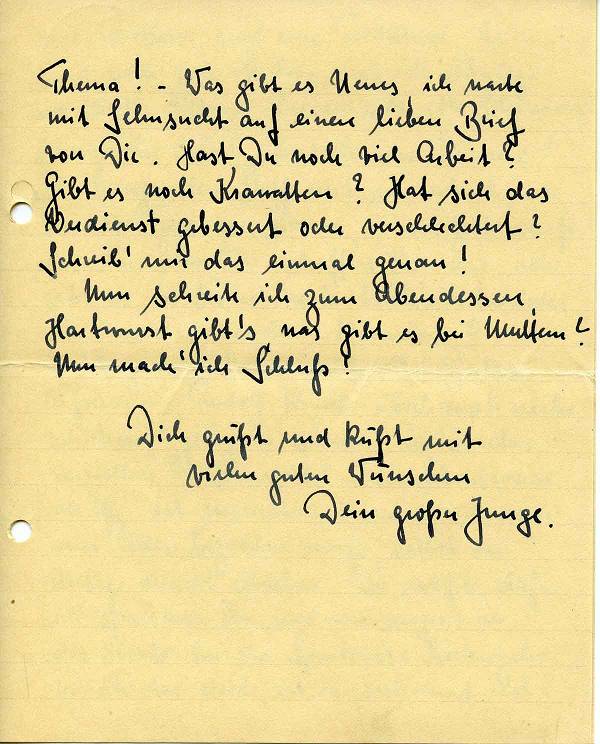 Thema! - Was gibt es Neues, ich warte
mit Sehnsucht auf einen lieben Brief
von Dir. Hast Du noch viel Arbeit?
Gibt es noch Krawatten? Hat sich das
Verdienst gebessert oder verschlechtert?
Schreib' mir das einmal genau!
Nun schreite ich zum Abendessen,
Hartwurst gibt's was gibt es bei Muttern?
Nun mach' ich Schluß!
Dich grüßt und küßt mit
vielen guten Wünschen
Dein großer Junge.